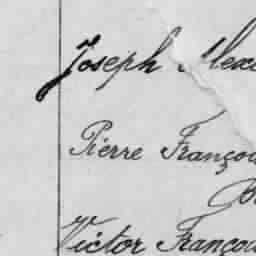 Joseph Alexa
Pierre Françoi
Victor Françoi